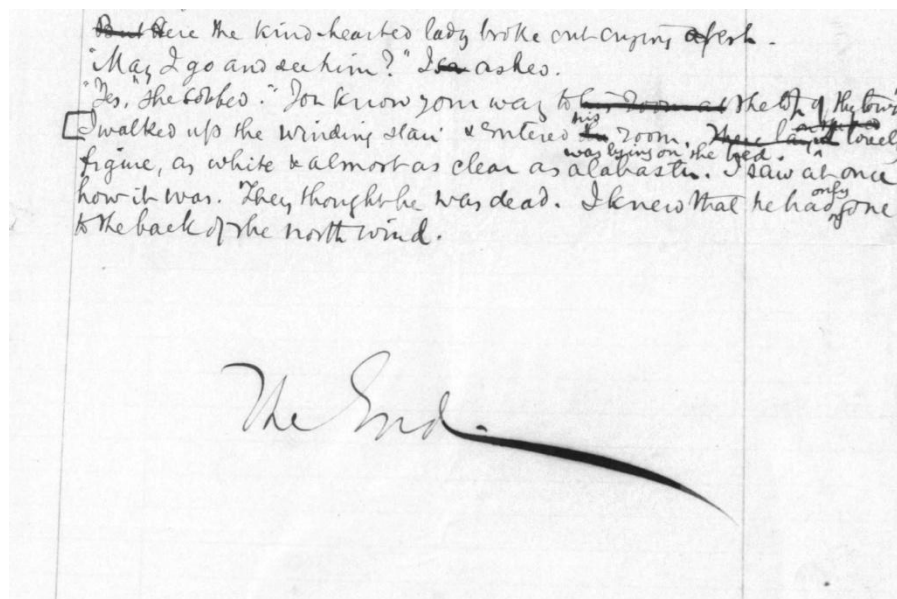 But Here the kind-hearted lady broke out crying afresh.
"May I go and see him?" I asked.
"Yes," she sobbed. "You know your way to his room at the top of the tower."
I walked up the winding stair & entered his room. There lay a lovely
figure, as white & almost as clear as alabaster. was lying on the bed. I saw at once
how it was. They thought he was dead. I knew that he had only gone
to the back of the north wind.
The End.